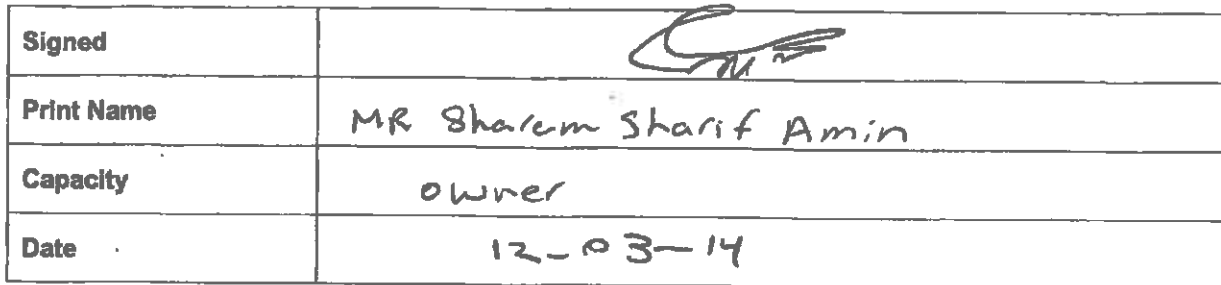 Signed
Print Name MR Sharem Sharif Amin
Capacity owner
Date 12-03-14